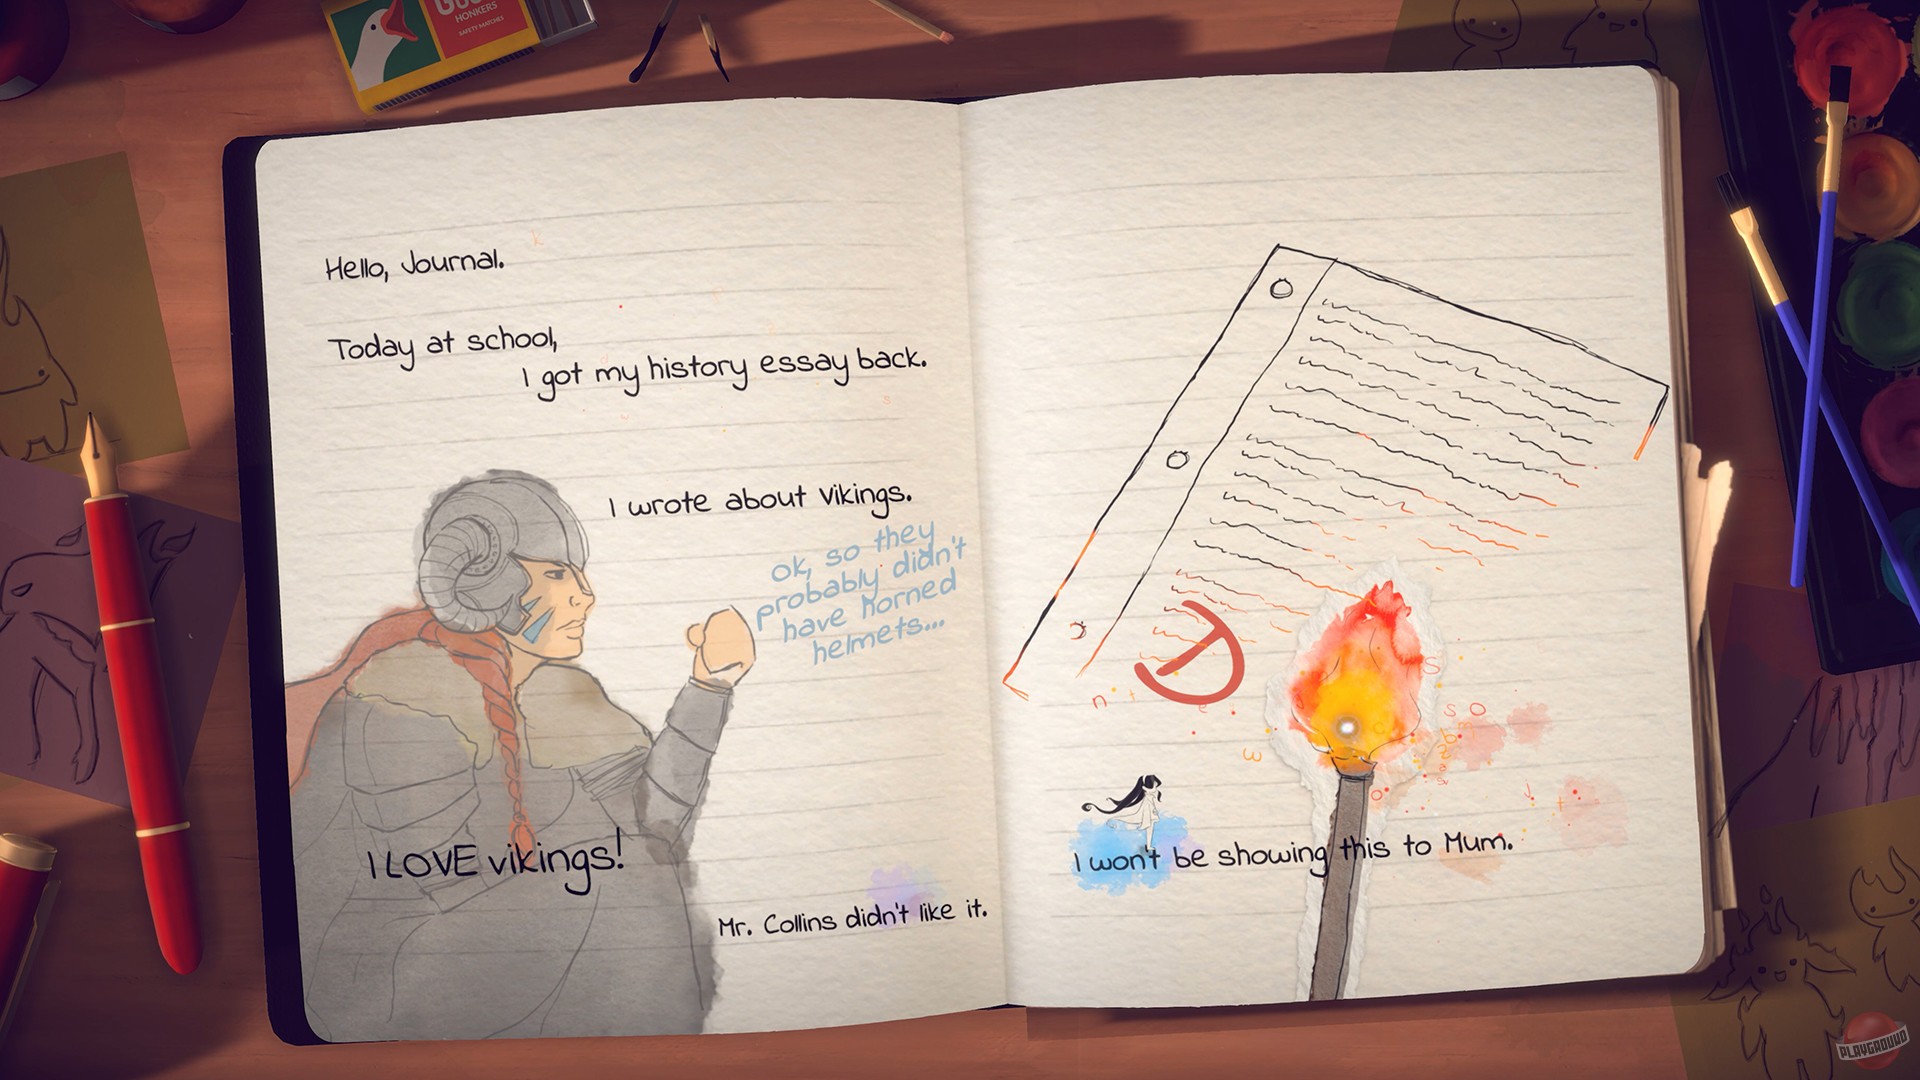 HONKERS
SAFETY MATCHES
Hello, Journal.
Today at school,
I got my history essay back.
I wrote about vikings.
ok, so they
probably didn't
have horned
helmets...
I LOVE vikings!
Mr. Collins didn't like it.
D
I won't be showing this to Mum.
PLAYGROUND